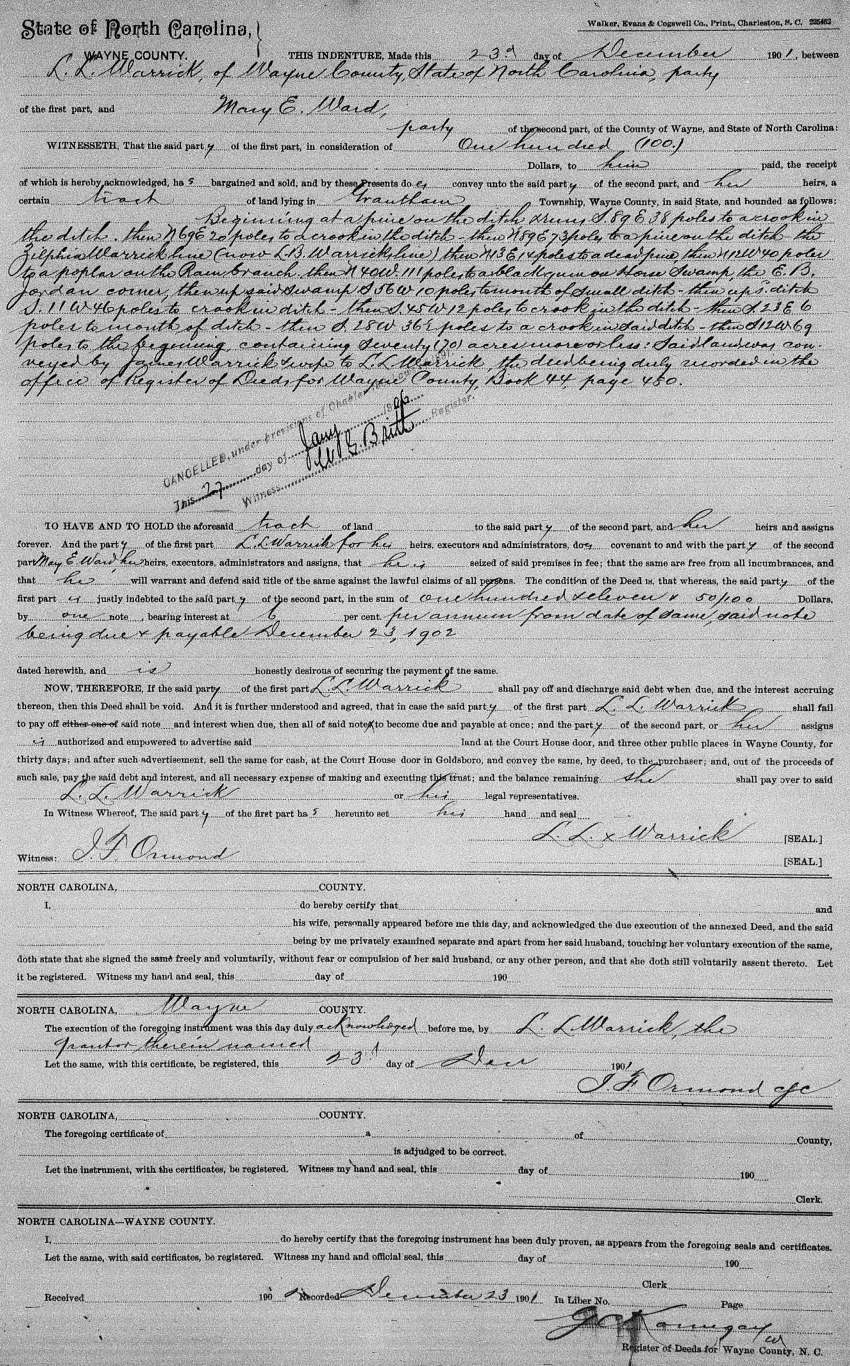 State of North Carolina,
Walker, Evans & Cogswell Co., Print., Charleston, S. C.
WAYNE COUNTY. THIS INDENTURE, Made this 23d day of December 1901, between
L. L. Warrick, of Wayne County, State of North Carolina, party
of the first part, and Mary E. Ward,
party of the second part, of the County of Wayne, and State of North Carolina:
WITNESSETH, That the said party of the first part, in consideration of One hundred (100.)
Dollars, to him paid, the receipt
of which is hereby acknowledged, has bargained and sold, and by these Presents does convey unto the said party of the second part, and her heirs, a
certain tract of land lying in Grantham Township, Wayne County, in said State, and bounded as follows:
Beginning at a pine on the ditch & runs S. 89 E 38 poles to a crook in
the ditch. then N 69 E 20 poles to a crook in the ditch - then N 89 E 73 poles to a pine on the ditch - the
Zilphia Warrick line (now L.B. Warricks line), then N 13 E 14 poles to a dead pine, then N 12 W 40 poles
to a poplar on the Rain branch, then N 40 W. 111 poles to a black gum on Horse Swamp, the E. B.
Jordan corner, then up said Swamp S 56 W 10 poles to mouth of small ditch - then up sd. ditch
S. 11 W 46 poles to crook in ditch - then S. 45 W 12 poles to crook in the ditch - then S. 23 E 6
poles to mouth of ditch - then S. 28 W 36½ poles to a crook in said ditch - then S 12 W 69
poles to the beginning, containing Seventy (70) acres more or less: Said land was con-
veyed by James Warrick & wife to L. L. Warrick, the deed being duly recorded in the
office of Register of Deeds for Wayne County, Book 44, page 450.
CANCELLED, under provisions of Chapter
This 27 day of Jany 1906
Witness W. G. Britt Register.
TO HAVE AND TO HOLD the aforesaid tract of land to the said party of the second part, and her heirs and assigns
forever. And the party of the first part L. L. Warrick for his heirs, executors and administrators, does covenant to and with the party of the second
part Mary E. Ward, her heirs, executors, administrators and assigns, that he is seized of said premises in fee; that the same are free from all incumbrances, and
that he will warrant and defend said title of the same against the lawful claims of all persons. The condition of the Deed is, that whereas, the said party of the
first part is justly indebted to the said party of the second part, in the sum of one hundred & eleven & 50/100 Dollars,
by one note, bearing interest at 6 per cent. per annum from date of same, said note
being due & payable December 23, 1902
dated herewith, and is honestly desirous of securing the payment of the same.
NOW, THEREFORE, If the said party of the first part L. L. Warrick shall pay off and discharge said debt when due, and the interest accruing
thereon, then this Deed shall be void. And it is further understood and agreed, that in case the said party of the first part L. L. Warrick shall fail
to pay off either one of said note and interest when due, then all of said note to become due and payable at once; and the party of the second part, or her assigns
is authorized and empowered to advertise said land at the Court House door, and three other public places in Wayne County, for
thirty days; and after such advertisement, sell the same for cash, at the Court House door in Goldsboro, and convey the same, by deed, to the purchaser; and, out of the proceeds of
such sale, pay the said debt and interest, and all necessary expense of making and executing this trust; and the balance remaining she shall pay over to said
L. L. Warrick or his legal representatives.
In Witness Whereof, The said party of the first part has hereunto set his hand and seal
L. L. x Warrick [SEAL.]
Witness: J. F. Ormond [SEAL.]
NORTH CAROLINA, COUNTY.
I, do hereby certify that and
his wife, personally appeared before me this day, and acknowledged the due execution of the annexed Deed, and the said
being by me privately examined separate and apart from her said husband, touching her voluntary execution of the same,
doth state that she signed the same freely and voluntarily, without fear or compulsion of her said husband, or any other person, and that she doth still voluntarily assent thereto. Let
it be registered. Witness my hand and seal, this day of 190
NORTH CAROLINA, Wayne COUNTY.
The execution of the foregoing instrument was this day duly acknowledged before me, by L. L. Warrick, the
grantor therein named
Let the same, with this certificate, be registered, this 23d day of Decr 1901
J. F. Ormond CSC
NORTH CAROLINA, COUNTY.
The foregoing certificate of a of County,
is adjudged to be correct.
Let the instrument, with the certificates, be registered. Witness my hand and seal, this day of 190
Clerk.
NORTH CAROLINA—WAYNE COUNTY.
I, do hereby certify that the foregoing instrument has been duly proven, as appears from the foregoing seals and certificates.
Let the same, with said certificates, be registered. Witness my hand and official seal, this day of 190
Clerk
Received 190 Recorded December 23 1901 In Liber No. Page
G C Kornegay
Register of Deeds for Wayne County, N. C.